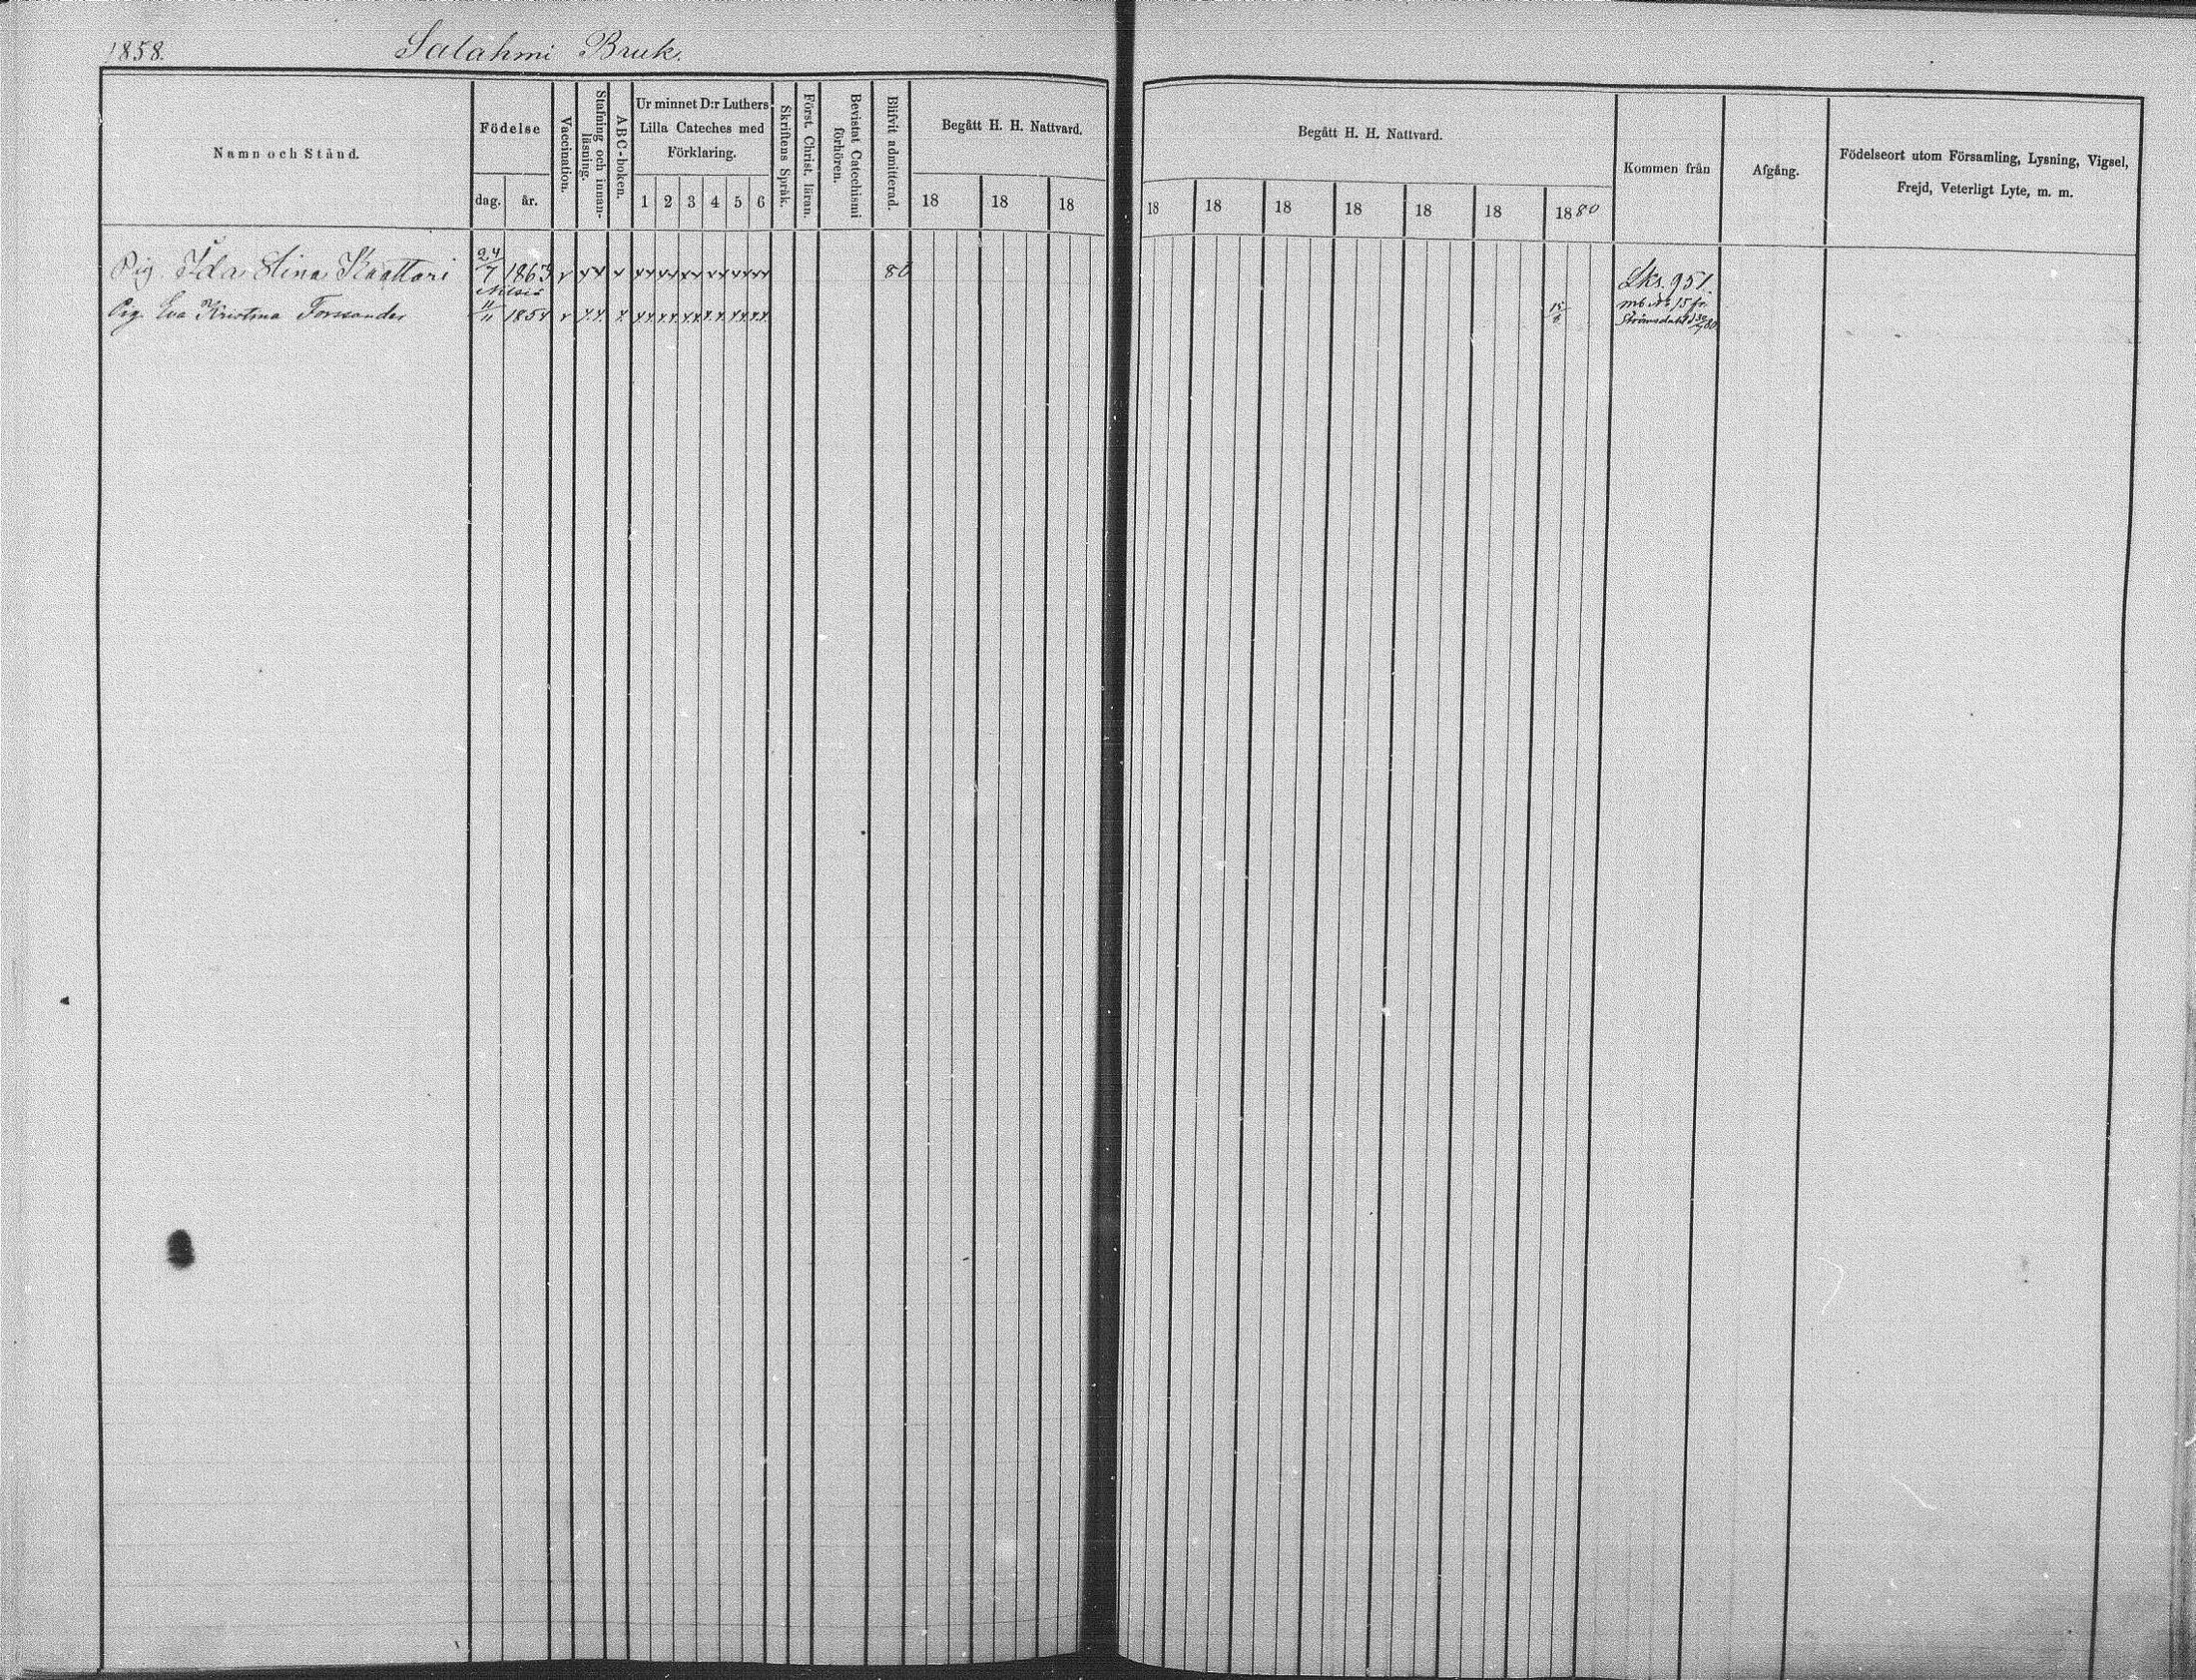 1858.
Salahmi Bruk.
Namn och Stånd.
Födelse
dag. år.
Vaccination.
Stafning och innan-
läsning.
ABC-boken.
Ur minnet D:r Luthers
Lilla Cateches med
Förklaring.
1 2 3 4 5 6
Skriftens Språk.
Först. Christ. läran.
Bevistat Catechismi
förhören.
Blifvit admitterad.
Begått H. H. Nattvard.
18 18 18
Begått H. H. Nattvard.
18 18 18 18 18 18 1880
Kommen från
Afgång.
Födelseort utom Församling, Lysning, Vigsel,
Frejd, Veterligt Lyte, m. m.
Pig. Ida Stina Kaattari 24/7 1863 v xx x xx xx xx xx xx xx 80 Lks. 951.
Nilsiä
Pig. Eva Kristina Forssander 11/11 1854 v xx x xx xx xx xx xx xx 15/6 mb. No 15 fr.
Strömsdahl d 30/ 80